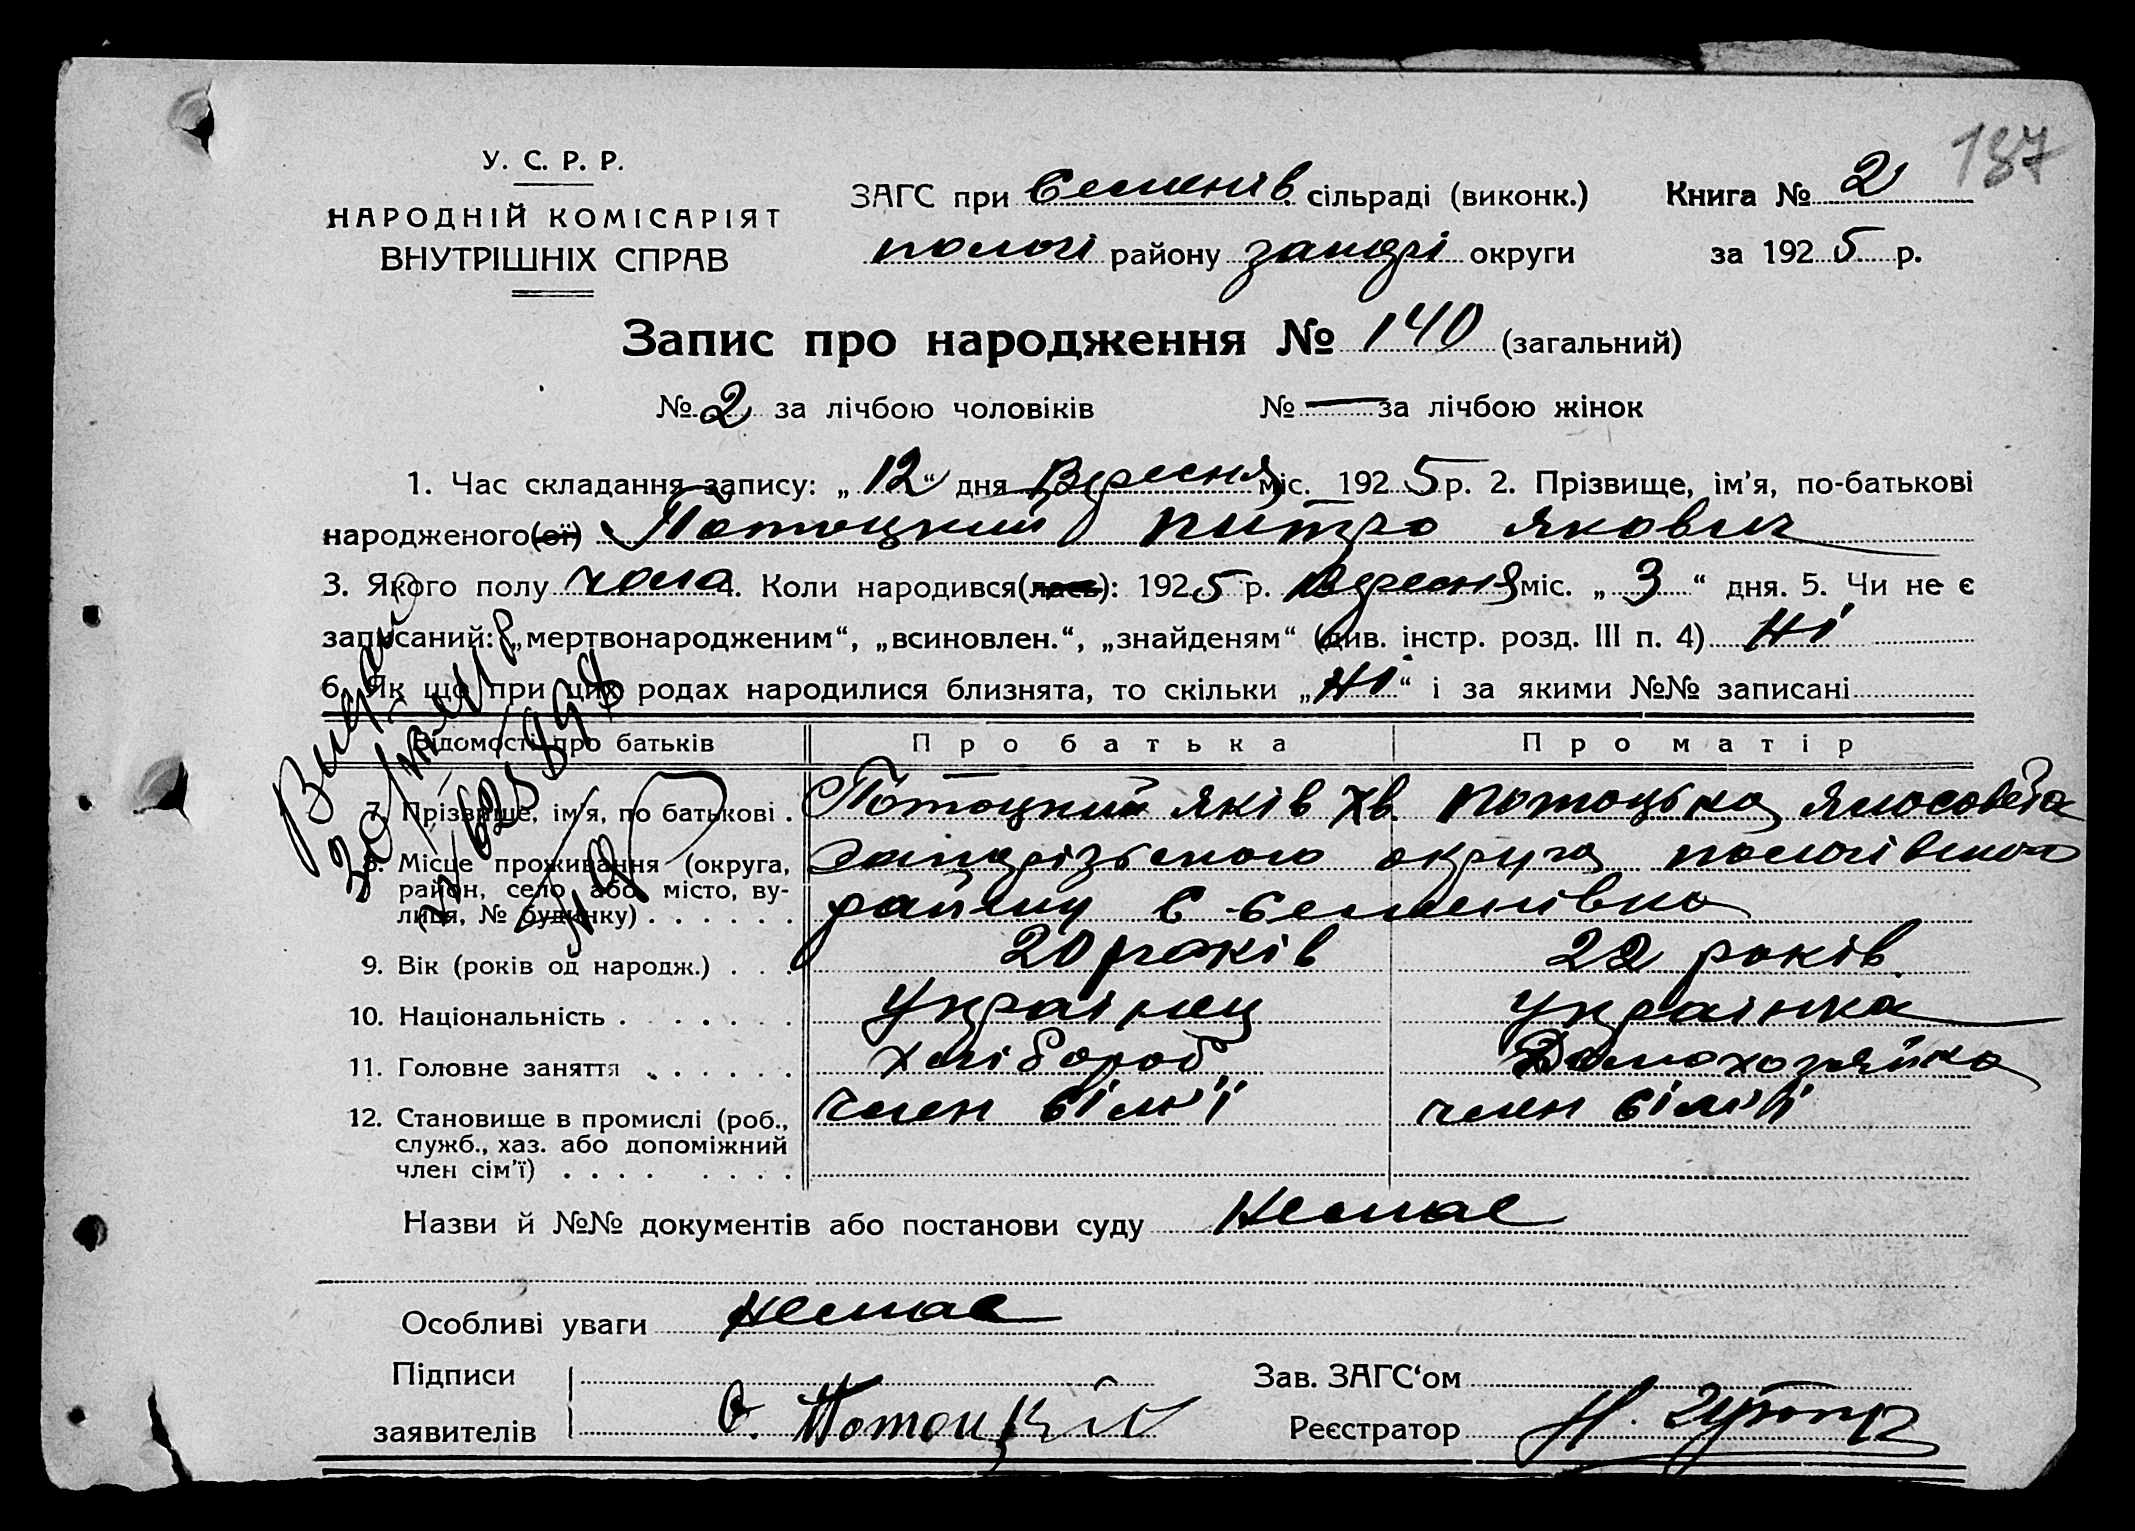 187
У. С. Р. Р.
НАРОДНІЙ КОМІСАРІЯТ
ВНУТРІШНІХ СПРАВ
ЗАГС при Семенів сільраді (виконк.)
Книга № 2
пологі району запорі округи
за 1925 р.
Запис про народження № 140 (загальний)
№ 2 за лічбою чоловіків № — за лічбою жінок
1. Час складання запису: „12“ дня Вересня міс. 1925 р. 2. Прізвище, ім'я, по-батькові
народженого(ої) Потоцкий Питро якович
3. Якого полу чоло 4. Коли народився(лась): 1925 р. Вересня міс. „3“ дня. 5. Чи не є
записаний: „мертвонародженим“, „всиновлен.“, „знайденям“ (див. інстр. розд. III п. 4) Ні
6. Як що при цих родах народилися близнята, то скільки „Ні“ і за якими №№ записані
Відомості про батьків
Про батька
Про матір
7. Прізвище, ім'я, по батькові . Потоцкий яків Хв. потоцька
8. Місце проживання (округа,
район, село або місто, ву-
лиця, № будинку) . . . . . .
округа пологівского
району с семенівка
9. Вік (років од народж.) . . . 20 років 22 років
10. Національність . . . . . . . Украінец украінка
11. Головне заняття . . . . . . хлібороб Домохозяйка
12. Становище в промислі (роб.,
служб., хаз. або допоміжний
член сім'ї) . . . . . . . .
член сімї член сімї
Назви й №№ документів або постанови суду Немає
Особливі уваги немає
Підписи
заявителів
Потоцкий
Зав. ЗАГС‘ом
Реєстратор